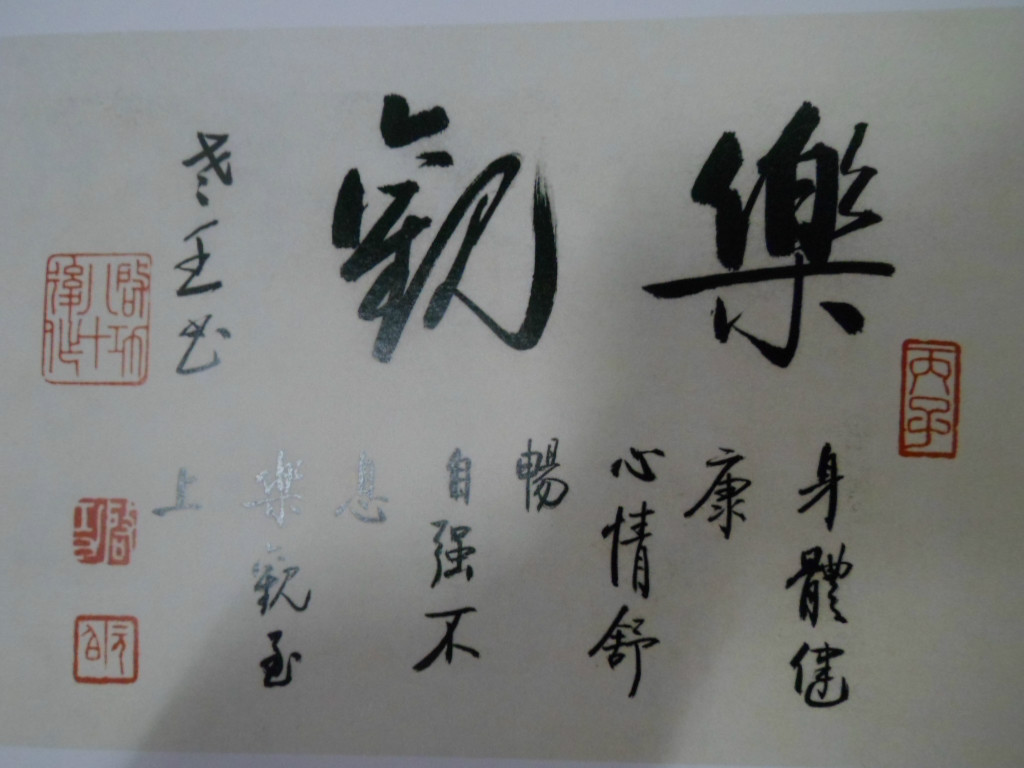 樂觀
丙子
身體健
康
心情舒
暢
自强不
息
樂觀至
上